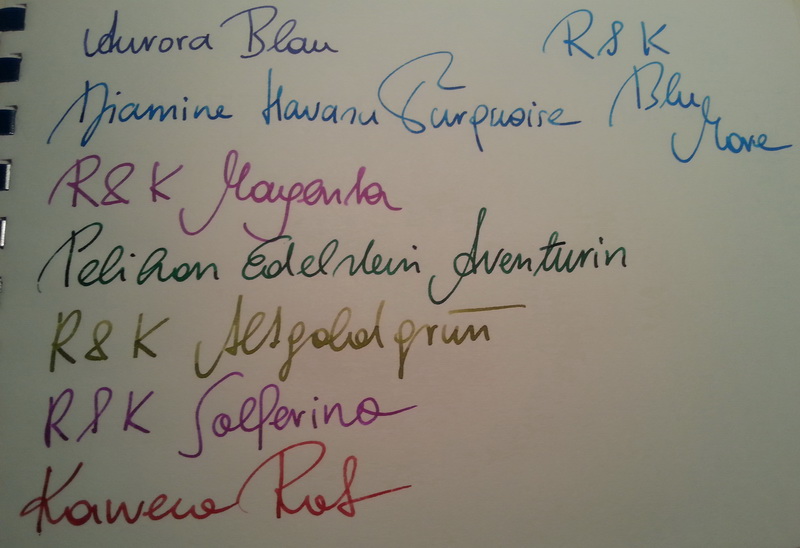 Aurora Blau R & K
Diamine Havasu Turquoise Blu Mare
R & K Magenta
Pelikan Edelstein Aventurin
R & K Altgoldgrün
R & K Solferino
Kaweco Rot